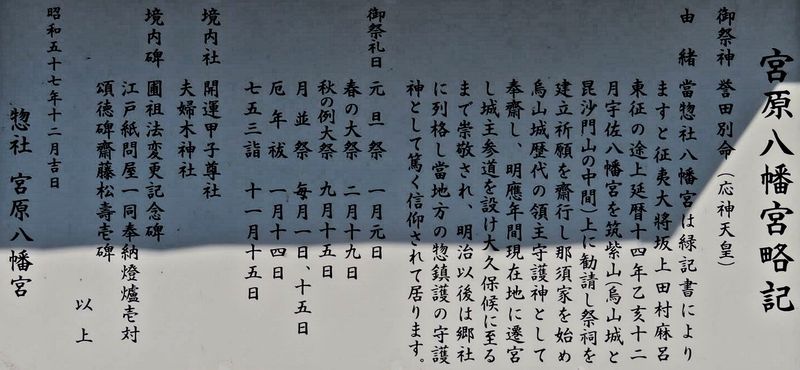 宮原八幡宮略記
御祭神 誉田別命(応神天皇)
由緒 當惣社八幡宮は緑記書により
ますと征夷大將坂上田村麻呂
東征の途上延暦十四年乙亥十二
月宇佐八幡宮を筑紫山(烏山城と
昆沙門山の中間)上に勧請し祭祠を
建立祈願を齋行し那須家を始め
烏山城歴代の領主守護神として
奉齋し、明應年間現在地に遷宮
し城主参道を設け大久保候に至る
まで崇敬され、明治以後は郷社
に列格し當地方の惣鎮護の守護
神として篤く信仰されて居ります。
御祭礼日 元旦祭 一月元日
春の大祭 二月十九日
秋の例大祭 九月十五日
月並祭 毎月一日、十五日
厄年祓 一月十四日
七五三詣 十一月十五日
境内社 開運甲子尊社
夫婦木神社
境内碑 圃祖法変更記念碑
江戸紙問屋一同奉納燈爐壱対
頌徳碑齋藤松壽壱碑
以上
昭和五十七年十二月吉日
惣社 宮原八幡宮